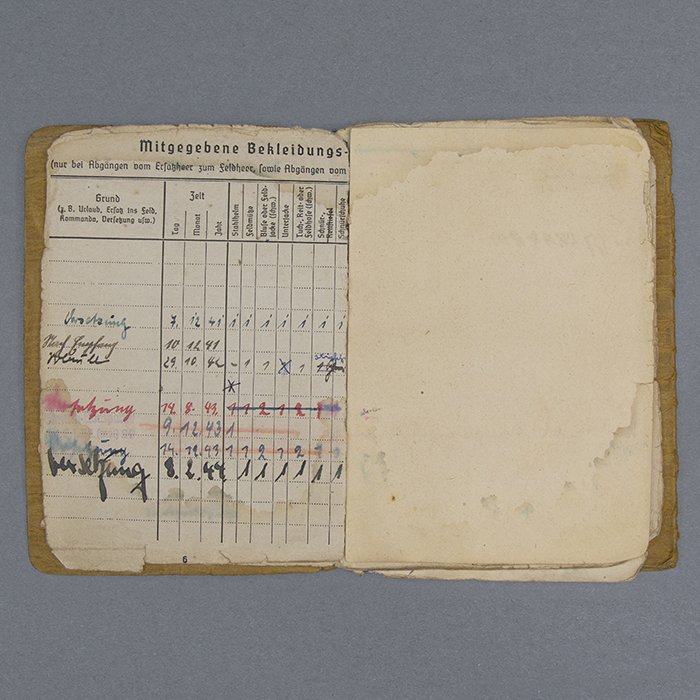 Mitgegebene Bekleidungs-
(nur bei Abgängen vom Ersatzheer zum Feldheer, sowie Abgängen vom
Grund
(z. B. Urlaub, Ersatz ins Feld,
Kommando, Versetzung usw.)
Zeit
Tag
Monat
Jahr
Stahlhelm
Feldmütze
Bluse oder Feld-
jacke (schw.)
Unterjacke
Tuch-, Reit- oder
Feldhose (schw.)
Schnür-,
Schnürschuhe
Versetzung 7. 12 41 1 1 1 1 1 1 1
Nach Empfang 10 12 41
29. 10. 42 - 1 1 x 1 1
x
Versetzung 14. 8. 43. 1 1 2 1 2 1
9. 12. 43 1
14. 12. 43 1 1 2 1 2 1
Versetzung 8. 2. 44. 1 1 1 1 1 1 1
6